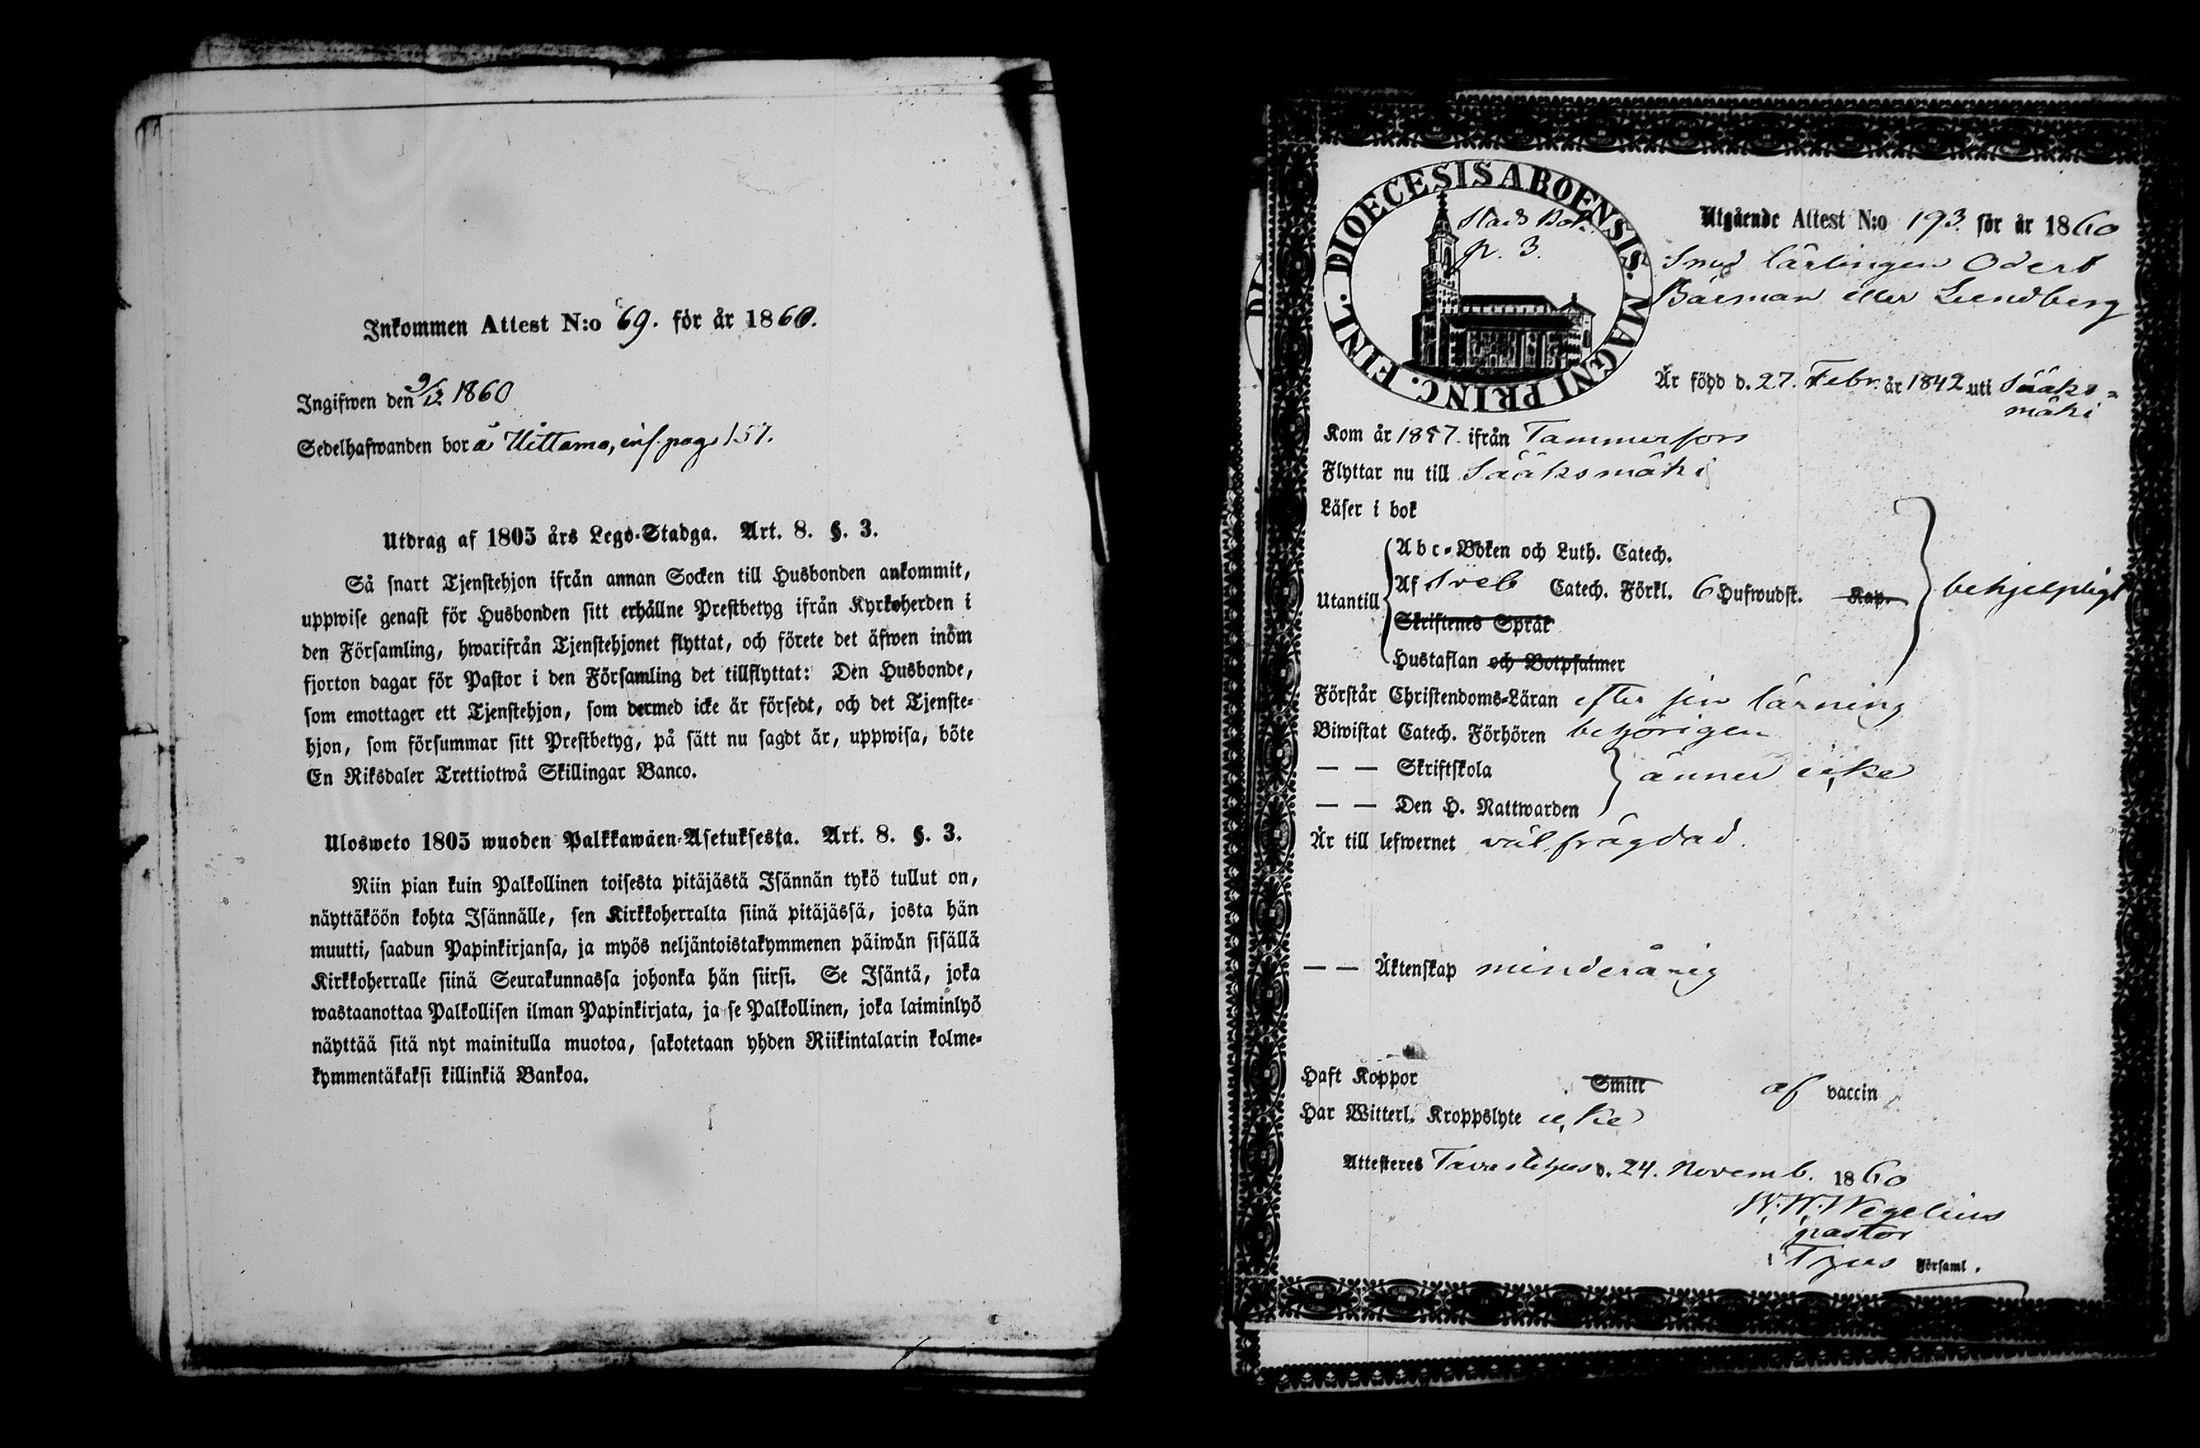 Inkommen Attest N:o 69. för år 1860.
Ingifwen den 9/12 1860
Sedelhafwanden bor å Uittamo, inf. pag. 157.
Utdrag af 1805 års Lego-Stadga. Art. 8. §. 3.
Så snart Tjenstehjon ifrån annan Socken till Husbonden ankommit,
uppwise genast för Husbonden sitt erhållne Prestbetyg ifrån Kyrkoherden i
den Församling, hwarifrån Tjenstehjonet flyttat, och förete det äfwen inom
fjorton dagar för Pastor i den Församling det tillflyttat: Den Husbonde,
som emottager ett Tjenstehjon, som dermed icke är försedt, och det Tjenste-
hjon, som försummar sitt Prestbetyg, på sätt nu sagdt är, uppwisa, böte
En Riksdaler Trettiotwå Skillingar Banco.
Ulosweto 1805 wuoden Palkkawäen-Asetuksesta. Art. 8. §. 3.
Niin pian kuin Palkollinen toisesta pitäjästä Isännän tykö tullut on,
näyttäköön kohta Isännälle, sen Kirkkoherralta siinä pitäjässä, josta hän
muutti, saadun Papinkirjansa, ja myös neljäntoistakymmenen päiwän sisällä
Kirkkoherralle siinä Seurakunnassa johonka hän siirsi. Se Isäntä, joka
wastaanottaa Palkollisen ilman Papinkirjata, ja se Palkollinen, joka laiminlyö
näyttää sitä nyt mainitulla muotoa, sakotetaan yhden Riikintalarin kolme-
kymmentäkaksi killinkiä Bankoa.
DIOECESIS ABOENSIS. MAGNI PRINC. FINL.
Stads Bok.
p. 3.
Utgående Attest N:o 193 för år 1860
Smed lärlingen Odert
Bärman eller Lundberg
Är född d. 27. Febr. år 1842 uti Sääks-
mäki
Kom år 1857. ifrån Tammerfors
Flyttar nu till Sääksmäki
Läser i bok
Abc-Boken och Luth. Catech.
Utantill Af Sveb Catech. Förkl. 6 Hufwudst. Kap. behjelpligt
Skriftenes Språk
Hustaflan och Botpsalmer
Förstår Christendoms-Läran efter sin lärning
Biwistat Catech. Förhören behörigen
— — Skriftskola ännu icke
— — Den H. Nattwarden
Är till lefwernet välfrägdad.
— — Äktenskap minderårig
Haft Koppor Smitt af vaccin
Har Witterl. Kroppslyte icke
Attesteres Tavastehus d. 24. Novemb. 1860
W. W. Wegelius
pastor
Församl.